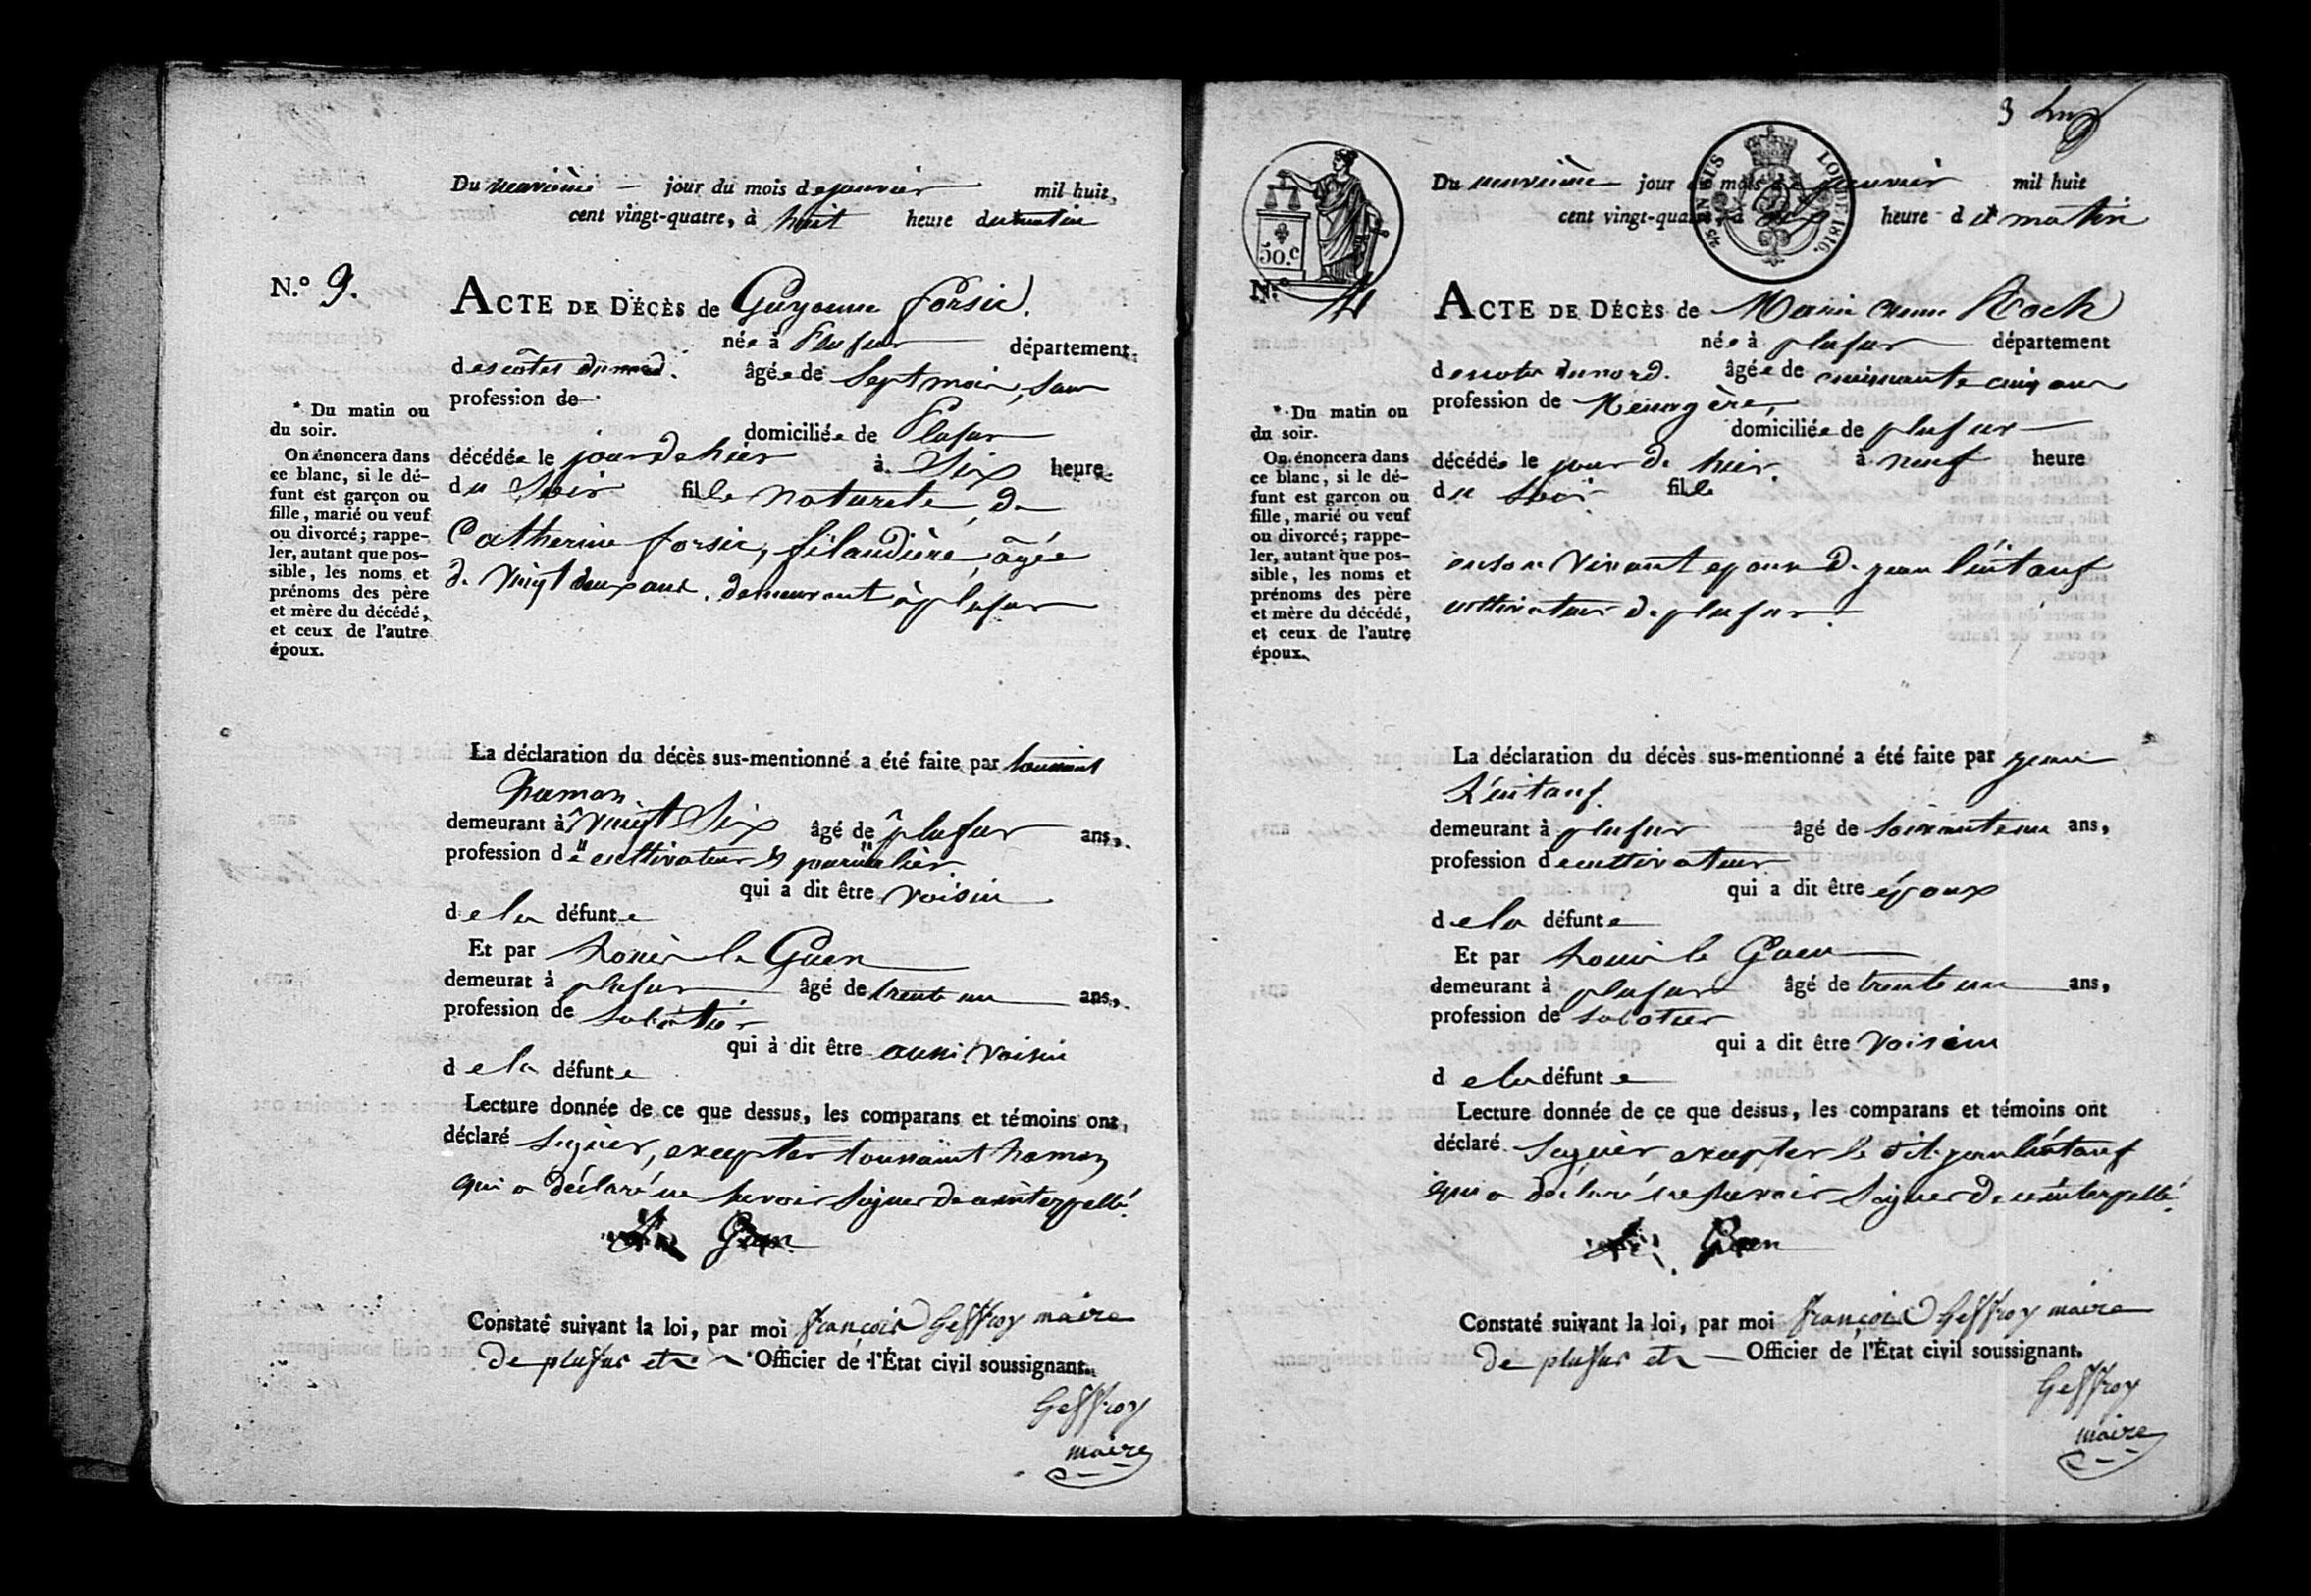 Du neuvième jour du mois de janvier mil huit
cent vingt-quatre, à huit heure du matin
N.º 9.
ACTE DE DÉCÈS de Guyonne forsic.
née à Plufur département
des côtes du nord. âgée de Sept mois, sans
profession de
domiciliée de Plufur
décédée le jour de hier à Six heure
du Soir fille naturele de
Catherine forsic, filandière, âgée
de vingt deux ans, demeurant à plufur
* Du matin ou
du soir.
On énoncera dans
ce blanc, si le dé-
funt est garçon ou
fille, marié ou veuf
ou divorcé; rappe-
ler, autant que pos-
sible, les noms et
prénoms des père
et mère du décédé,
et ceux de l'autre
époux.
La déclaration du décès sus-mentionné a été faite par toussaint
hamon
demeurant à vingt Six âgé de plufur ans,
profession de cultivateur
qui a dit être voisin
de la défunte
Et par Louis le Guen
demeurat à plufur âgé de trente un ans,
profession de sabotier
qui à dit être aussi voisin
de la défunte
Lecture donnée de ce que dessus, les comparans et témoins ont,
déclaré signer, excepter toussaint hamon
qui a déclaré ne savoir signer de ce interpellé.
Le Guen
Constaté suivant la loi, par moi françois Geffroy maire
de plufur etc Officier de l'État civil soussignant.
Geffroy
maire
3
45 EN SUS
LOI DE 1816.
50.c
Du neuvième jour du mois de janvier mil huit
cent vingt-quatre, à heure du matin
N.º
ACTE DE DÉCÈS de Marie anne Roch
née à plufur département
des cotes du nord. âgée de cinquante cinq ans
profession de Menagère,
domiciliée de plufur
décédée le jour de hier à neuf heure
du Soir fille
en son vivant epouse de jean Lintanf
cultivateur de plufur.
* Du matin ou
du soir.
On énoncera dans
ce blanc, si le dé-
funt est garçon ou
fille, marié ou veuf
ou divorcé; rappe-
ler, autant que pos-
sible, les noms et
prénoms des père
et mère du décédé,
et ceux de l'autre
époux.
La déclaration du décès sus-mentionné a été faite par jean
Lintanf
demeurant à plufur âgé de soixante un ans,
profession de cultivateur
qui a dit être époux
de la défunte
Et par Louis le Guen
demeurant à plufur âgé de trente un ans,
profession de sabotier
qui a dit être voisin
de la défunte
Lecture donnée de ce que dessus, les comparans et témoins ont
déclaré signer excepter le dit jean lintanf
qui a déclaré ne savoir signer de ce interpellé.
Le Guen
Constaté suivant la loi, par moi françois Geffroy maire
de plufur etc Officier de l'État civil soussignant.
Geffroy
maire